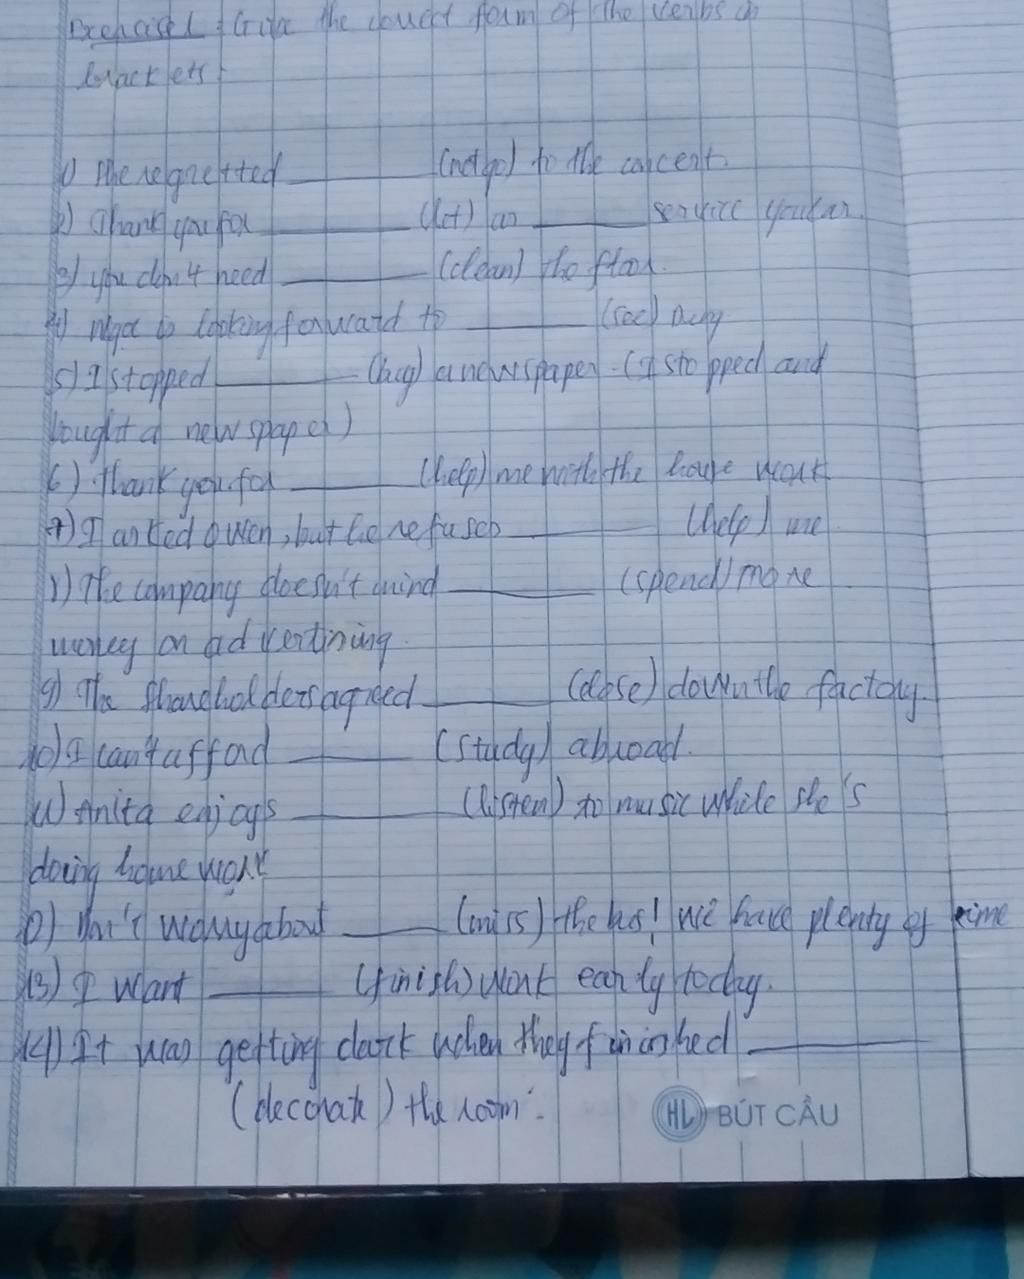 Exercise 1 : Give the correct form of the verbs in
brackets.
1) She regretted ______ (not go) to the concert.
2) Thank you for ______ (let) us ______ service your car.
3) you don't need ______ (clean) the floor.
4) is looking forward to ______ (see)
5) I stopped ______ (buy) a newspaper. (I stopped and
bought a newspaper)
6) thank you for ______ (help) me with the house work
7) I asked Owen, but he refused ______ (help) me
8) The company doesn't mind ______ (spend) more
money on advertining.
9) The shareholders agreed ______ (close) down the factory.
10) I can't afford ______ (study) abroad.
11) Anita enjoys ______ (listen) to music while she's
doing home work
12) Don't worry about ______ (miss) the bus! We have plenty of time
13) I want ______ (finish) work early today.
14) It was getting dark when they finished ______
(decorate) the room.
HL BÚT CẦU